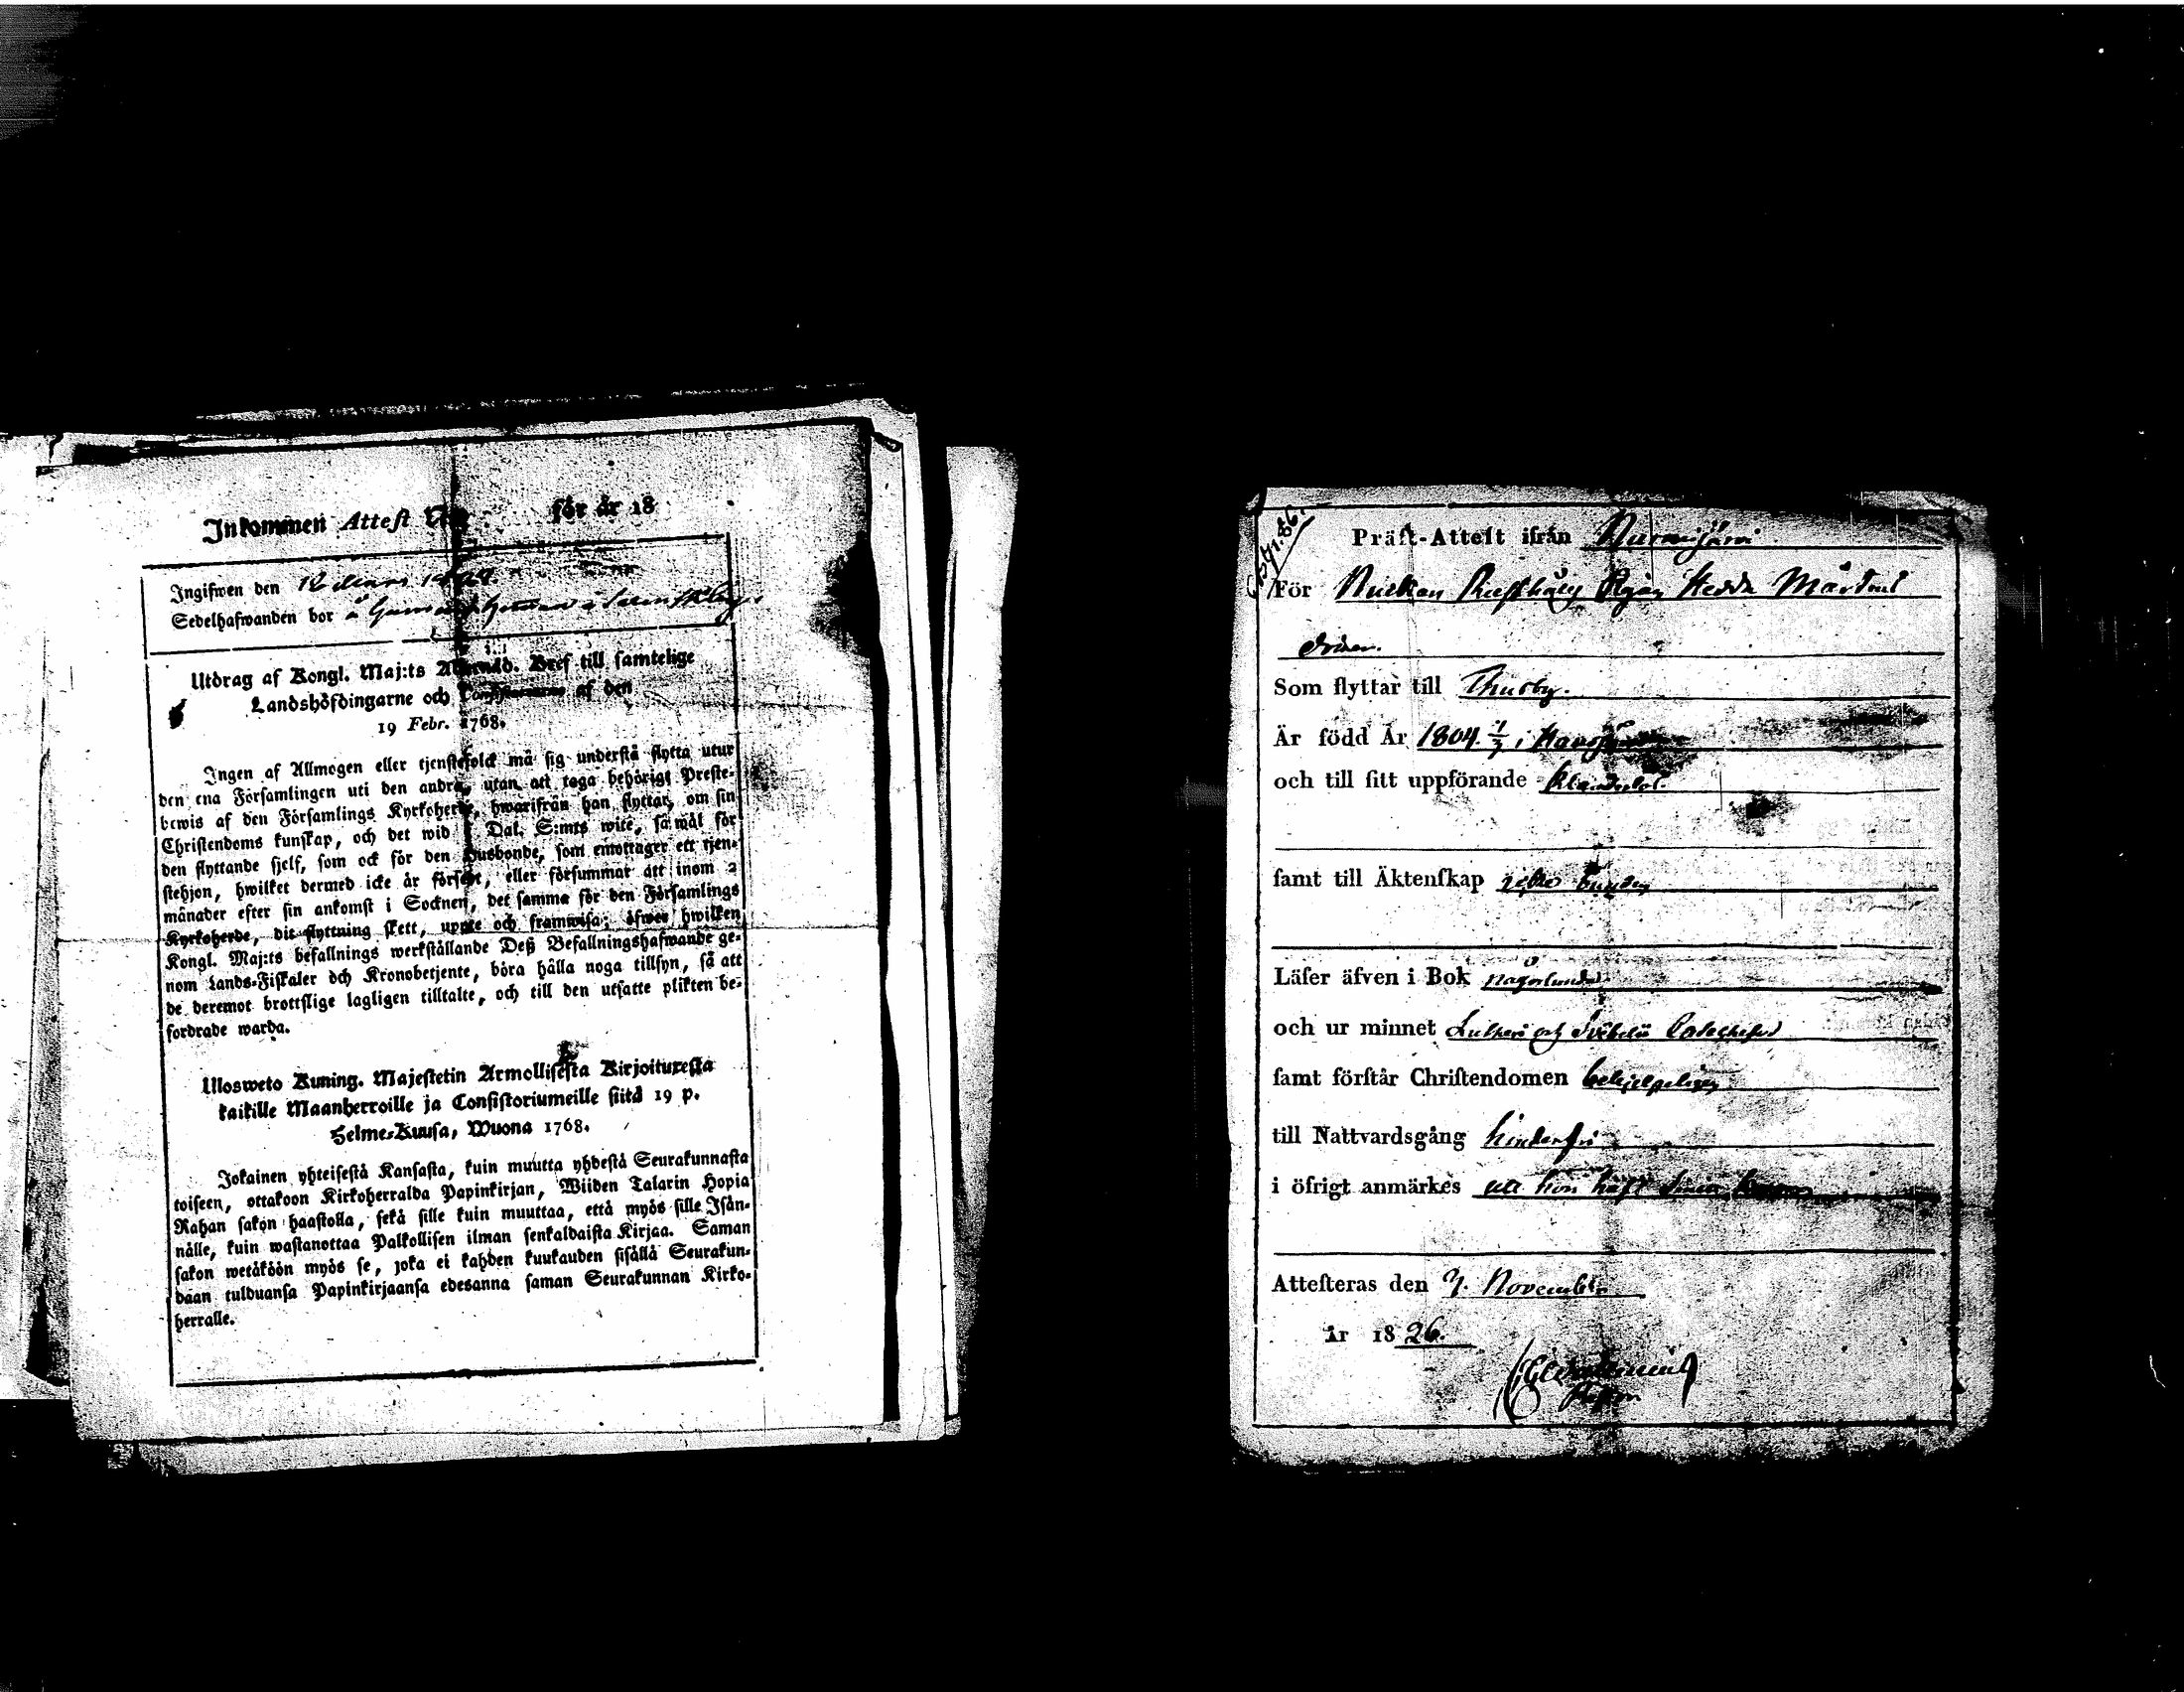 Inkommen Attest för år 18
Ingifwen den 12 Mars
Sedelhafwanden bor å
Utdrag af Kongl. Maj:ts Bref till samtelige
Landshöfdingarne och af den
19 Febr. 1768.
Ingen af Allmogen eller tjenstefolck må sig understå flytta utur
den ena Församlingen uti den andra, utan att taga behörigt Preste-
bewis af den Församlings Kyrkoherde, hwarifrån han flyttar, om sin
Christendoms kunskap, och det wid Dal. S:mts wite, så wäl för
den flyttande sjelf, som ock för den Husbonde, som emottager ett tjen-
stehjon, hwilket dermed icke är försedt, eller försummar att inom 2
månader efter sin ankomst i Socknen, det samma för den Församlings
Kyrkoherde, dit flyttning skett, uppte och framwisa; öfwer hwilken
Kongl. Maj:ts befallnings werkställande Deß Befallningshafwande ge-
nom Lands-Fiskaler och Kronobetjente, böra hålla noga tillsyn, så att
de deremot brottslige lagligen tilltalte, och till den utsatte plikten be-
fordrade warda.
Ulosweto Kuning. Majestetin Armollisesta Kirjoituxesta
kaikille Maanherroille ja Consistoriumeille siitä 19 p.
Helme-Kuusa, Wuona 1768.
Jokainen yhteisestä Kansasta, kuin muutta yhdestä Seurakunnasta
toiseen, ottakoon Kirkoherralda Papinkirjan, Wiiden Talarin Hopia
Rahan sakon haastolla, sekä sille kuin muuttaa, että myös sille Isän-
nälle, kuin wastanottaa Palkollisen ilman senkaldaista Kirjaa. Saman
sakon wetäköön myös se, joka ei kahden kuukauden sisällä Seurakun-
daan tulduansa Papinkirjaansa edesanna saman Seurakunnan Kirko-
herralle.
Präst-Attest ifrån Nurmijärvi
För Hedda Mårtens
dotter.
Som flyttar till Thusby.
Är född År 1804. 1/7 i
och till sitt uppförande klanderlös.
samt till Äktenskap
Läser äfven i Bok någorlunda
och ur minnet Lutheri och Svebelii Catecheser
samt förstår Christendomen behjelpeligen
till Nattvardsgång hinderfri
i öfrigt anmärkes att hon haft
Attesteras den 7. November
år 1826.